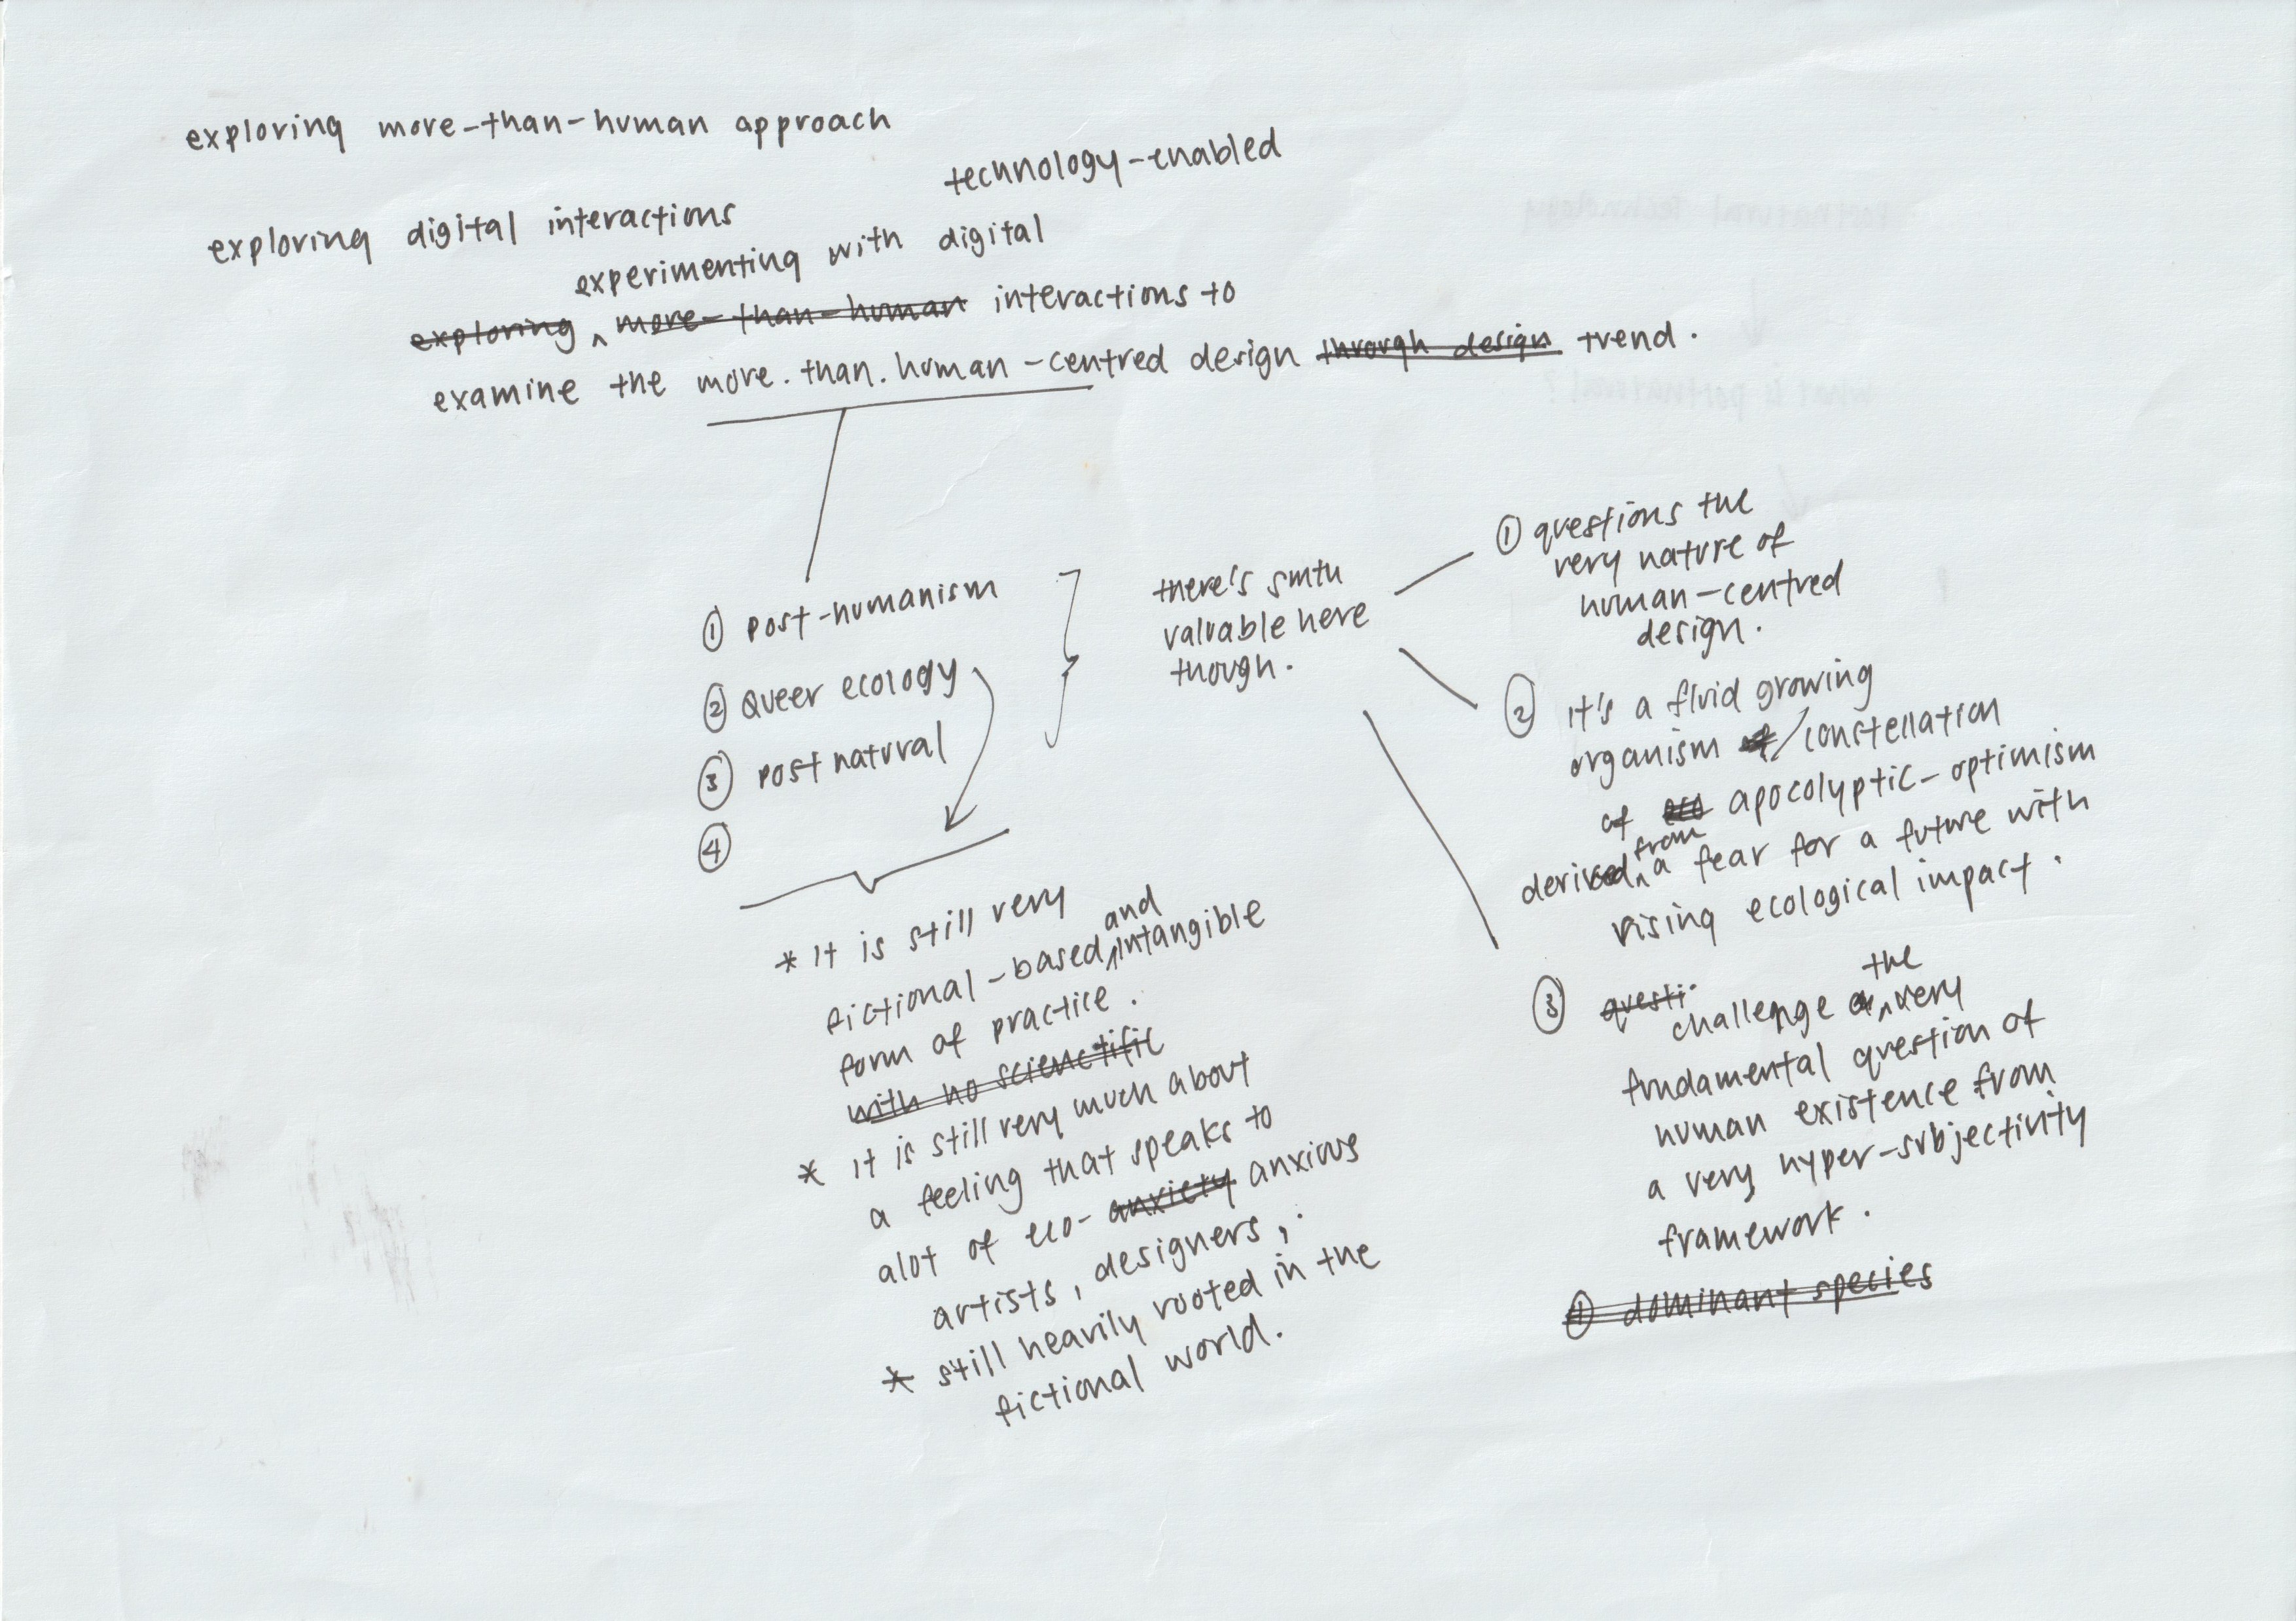 exploring more-than-human approach
technology-enabled
exploring digital interactions
experimenting with digital
exploring ^ more-than-human interactions to
examine the more.than.human-centred design through design trend.
① post-humanism
② Queer ecology
③ post natural
④
* It is still very
and
fictional-based ^ intangible
form of practice.
with no scienctific
* it is still very much about
a feeling that speaks to
alot of eco-anxiety anxious
artists, designers,.
* still heavily rooted in the
fictional world.
there's smth
valuable here
though.
① questions the
very nature of
human-centred
design.
② it's a fluid growing
organism of/constellation
of eco apocolyptic-optimism
from
derived ^ a fear for a future with
rising ecological impact.
the
③ questi.
challenge ^ very
fundamental question of
human existence from
a very hyper-subjectivity
framework.
④ dominant species
postnatural technology
what is postnatural?